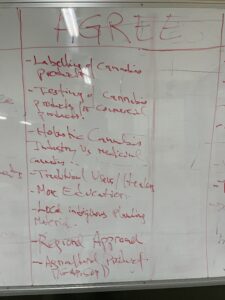 AGREE
- Labelling of Cannabis
products
- Testing of Cannabis
products for commercial
products.
- Holistic Cannabis
Industry Vs medicinal
cannabis
- Traditional Users / Healers
- More Education.
- Local indigenous Planning
Material
- Regional Approach
- Agricultural Product